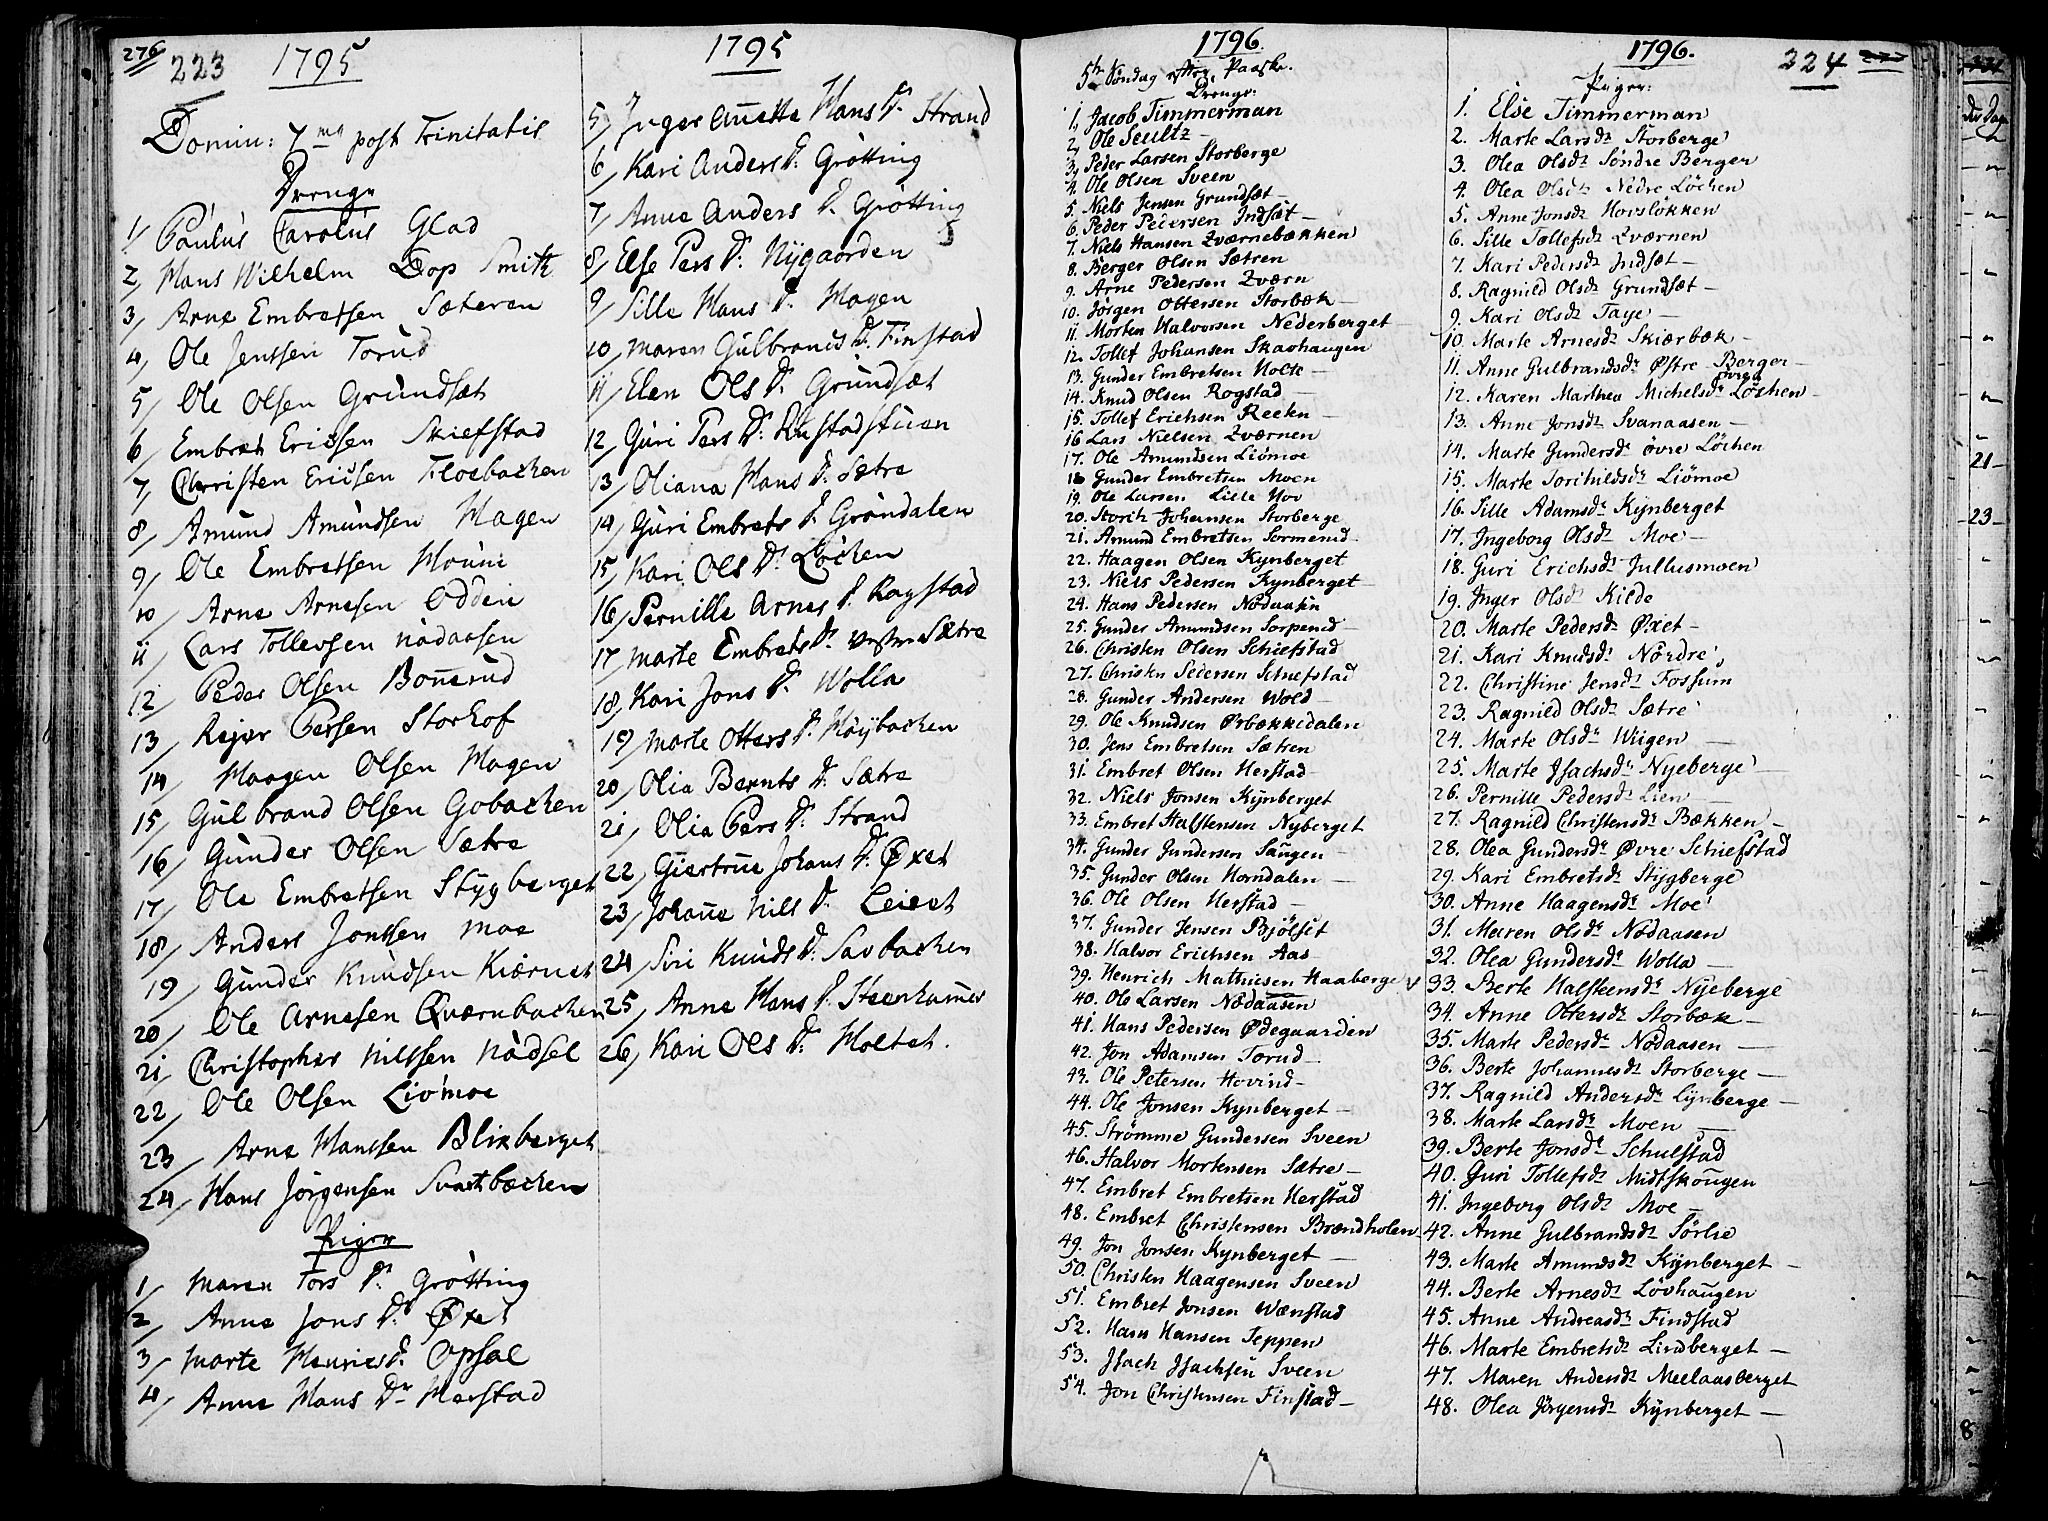 276
223 1795
Domin: 7ma post Trinitatis
Drenge
1/ Paulus Carolus Glad
2/ Hans Wilhelm Dop Smith
3/ Arne Embretsen Sæteren
4/ Ole Jenssen Torud
5/ Ole Olsen Grundsæt
6/ Embret Ericsen Skiefstad
7/ Christen Ericsen Floebachen
8/ Amund Amundsen Hagen
9/ Ole Embretsen
10/ Arne Arnesen Odden
11/ Lars Tollevsen Nödaasen
12/ Peder Olsen Bonnerud
13/ Rejer Persen Storhof
14/ Haagen Olsen Hagen
15/ Gulbrand Olsen Gobachen
16/ Gunder Olsen Sætre
17/ Ole Embretsen Stygberget
18/ Anders Jonssen Moe
19/ Gunder Knudsen Kiærnet
20/ Ole Arnesen Qværnbachen
21/ Christopher Nilssen Nödsel
22/ Ole Olsen Liömoe
23/ Arne Hanssen Blixberget
24/ Hans Jörgensen Svartbachen
Piger
1/ Maren Tors Dr Grötting
2/ Anne Jons Dr Øxet
3/ Marte Henricsdr Opsal
4/ Anne Hans Dr Herstad
1795
5/ Inger Anette Hans Dr Strand
6/ Kari Anders Dr Grötting
7/ Anne Anders Dr Grötting
8/ Else Pers Dr: Nygaarden
9/ Sille Hans Dr. Hagen
10/ Maren Gulbrands Dr. Finstad
11/ Elen Ols Dr: Grundsæt
12/ Guri Pers Dr: Rustadstuen
13/ Oliana Hans Dr. Sætre
14/ Guri Embrets Dr Gröndalen
15/ Kari Ols Dr Löchen
16/ Pernille Arnes Dr. Rogstad
17/ Marte Embrets Dr. Sætre
18/ Kari Jons Dr. Wolla
19/ Marte Otters Dr. Höybachen
20/ Olia Bernts Dr. Sætre
21/ Olia Pers Dr: Strand
22/ Giertrue Johans Dr. Øxet
23/ Johanne Nils Dr. Leiret
24/ Siri Knuds Dr: Savbachen
25/ Anne Hans Dr. Steenhamer
26/ Kari Ols Dr: Holtet.
1796.
5te Söndag efter Paaske.
Drenge:
1, Jacob Timmerman
2, Ole Seultz
3, Peder Larsen Storberge
4. Ole Olsen Sveen
5. Niels Jensen Grundsæt
6. Peder Pedersen Indsæt
7. Niels Hansen Zværnebækken
8. Berger Olsen Sætren
9. Arne Pedersen Zværn
10. Jörgen Ottersen Storbæk
11. Morten Halvorsen Nederberget
12. Tollef Johansen Skavhaugen
13. Gunder Embretsen Holte
14. Knud Olsen Rogstad
15. Tollef Erichsen Reekn
16 Lars Nielsen Zværnen
17. Ole Amundsen Liömoe
18 Gunder Embretsen Moen
19. Ole Larsen Lille Hov
20. Storik Johansen Storberge
21. Amund Embretsen Sormerud
22. Haagen Olsen Kynberget
23. Niels Pedersen Kynberget
24. Hans Pedersen Nödaasen
25. Gunder Amundsen Sorperud
26. Christen Olsen Schiefstad
27. Christen Pedersen Schiefstad
28. Gunder Andersen Wold
29. Ole Knudsen Ørbækkedalen
30. Jens Embretsen Sætren
31. Embret Olsen Herstad
32. Niels Jonsen Kynberget
33. Embret Halstensen Nyberget
34. Gunder Gundersen Saugen
35. Gunder Olsen Horndalen
36. Ole Olsen Herstad
37. Gunder Jensen Bjölset
38. Halvor Erichsen Aas
39. Henrich Mathiesen Haaberget
40. Ole Larsen Nødaasen
41. Hans Pedersen Ødegaarden
42. Jon Adamsen Torud
43. Ole Petersen Hovind
44. Ole Jonsen Kynberget
45. Strömme Gundersen Sveen
46. Halvor Mortensen Sætre
47. Embret Embretsen Herstad
48. Embret Christensen Brændholen
49. Jon Jonsen Kynberget
50. Christen Haagensen Sveen
51. Embret Jonsen Wænstad
52. Hans Hansen Seppen
53. Isach Isachsen Sveen
54. Jon Christensen Finstad
1796. 224
Piger:
1. Else Timmerman
2. Marte Larsdr Storberge
3. Olea Olsdr Söndre Berger
4. Olea Olsdr Nedre Löchen
5. Anne Jonsdr Horslökken
6. Sille Tollefsdr Zværnen
7. Kari Pedersdr Indsæt
8. Ragnild Olsdr Grundsæt
9. Kari Olsdr Taye
10. Marte Arnesdr Skiærbæk
11. Anne Gulbrandsdr Østre Berger
12. Karen Marthea Michelsdr övre Löchen
13. Anne Jonsdr Svanaasen
14. Marte Gundersdr övre Löchen
15. Marte Torchildsdr Liömoe
16. Sille Adamsdr Kynberget
17. Ingeborg Olsdr Moe
18. Guri Erichsdr Jullusmoen
19. Inger Olsdr Kilde
20. Marte Pedersdr Øxet
21. Kari Knudsdr Nordre
22. Christine Jensdr Fossum
23. Ragnild Olsdr Sætre
24. Marte Olsdr Wiigen
25. Marte Isachsdr Nyeberge
26. Pernille Pedersdr Lien
27. Ragnild Christensdr Bækken
28. Olea Gundersdr Øvre Schiefstad
29. Kari Embretsdr Stygberge
30. Anne Haagensdr Moe
31. Maren Olsdr Nödaasen
32. Olea Gundersdr Wolla
33. Berte Halsteensdr Nyeberge
34. Anne Ottersdr Storbæk
35. Marte Pedersdr Nödaasen
36. Berte Johannesdr Storberge
37. Ragnild Andersdr Lynberge
38. Marte Larsdr Moen
39. Berte Jonsdr Schulstad
40. Guri Tollefsdr Midtskougen
41. Ingeborg Olsdr Moe
42. Anne Gulbrandsdr Sörlie
43. Marte Amundsdr Kynberget
44. Berte Arnesdr Lövhaugen
45. Anne Andreasdr Findstad
46. Marte Embretsdr Lindberget
47. Maren Andersdr Meelaasberget
48. Olea Jörgensdr Kynberget
21
23
8